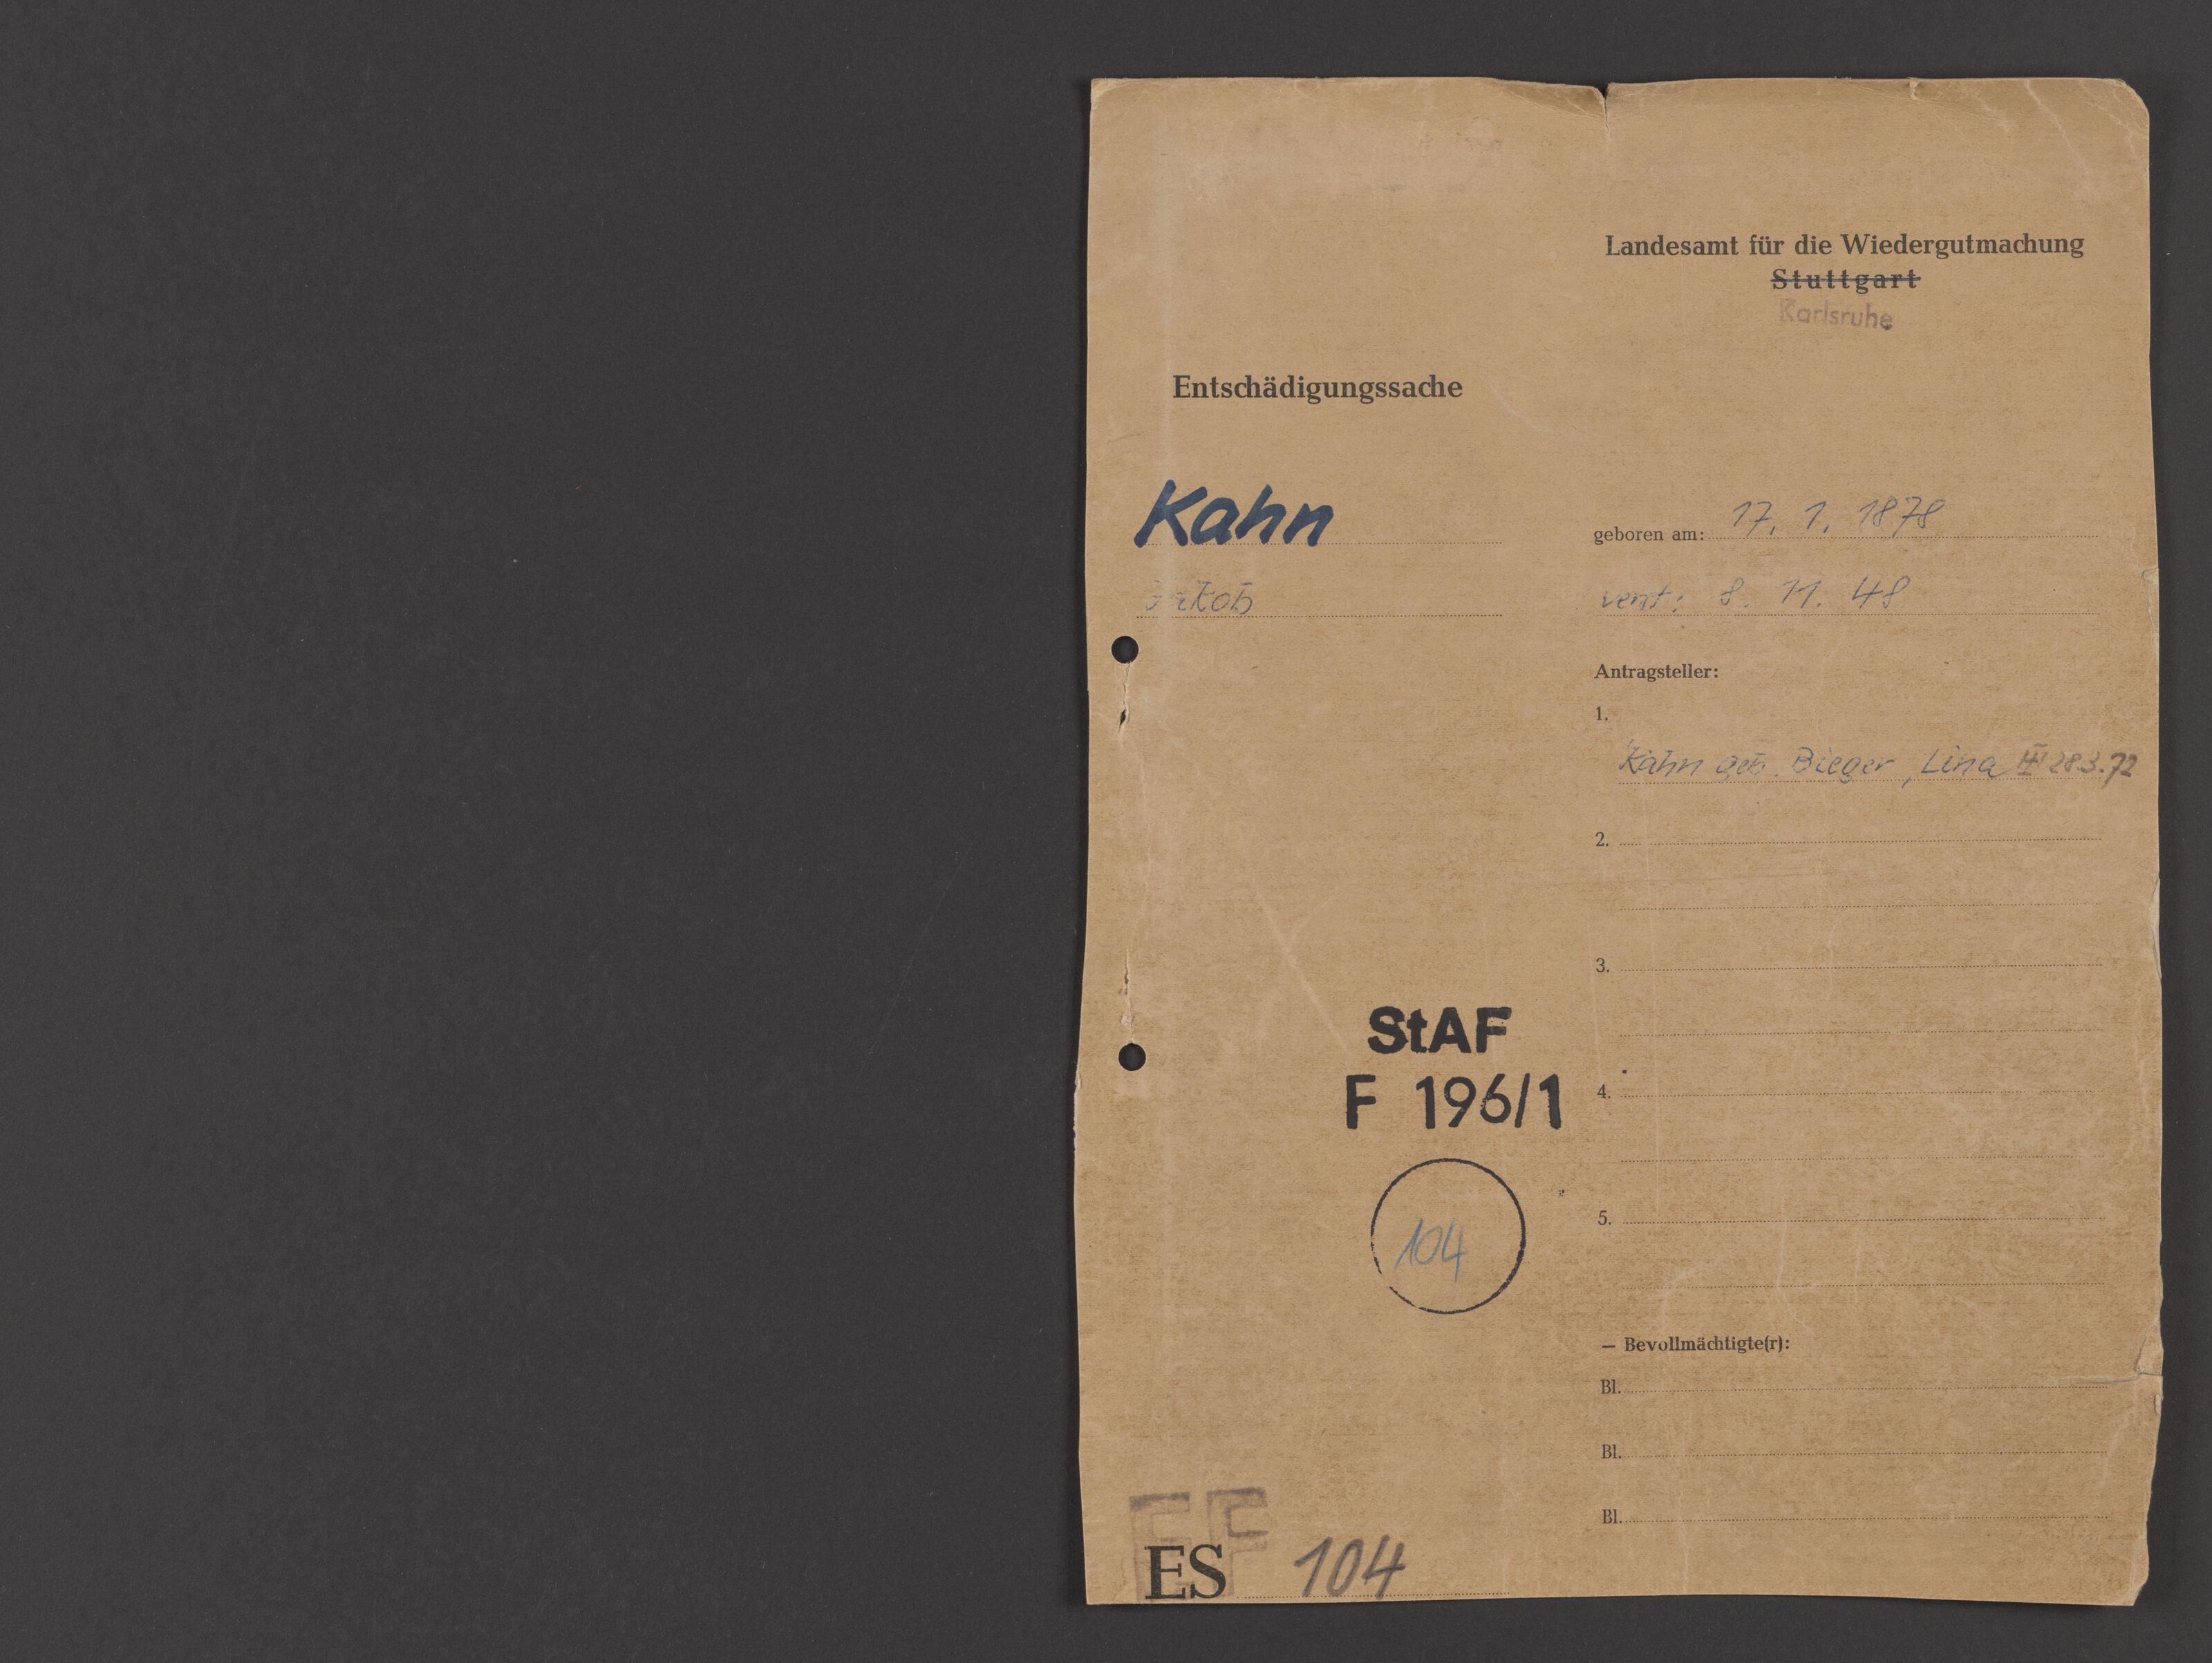 Landesamt für die Wiedergutmachung
Stuttgart
Karlsruhe
Entschädigungssache
Kahn
geboren am: 17. 1. 1878
Jakob
verst: 8. 11. 48
Antragsteller:
1.
Kahn geb. Bieger, Lina 28.3.72
2.
3.
StAF
F 196/1
4.
104
5.
— Bevollmächtigte(r):
Bl.
Bl.
Bl.
EF
ES 104